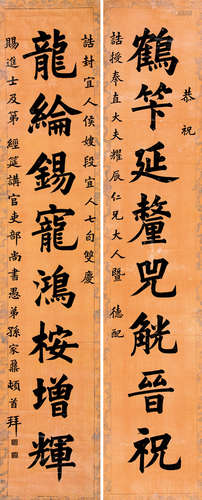 恭祝
誥授奉直大夫耀辰仁兄大人暨德配
鶴筭延釐兕觥晉祝
誥封宜人侯嫂段宜人七旬雙慶
龍綸錫寵鴻桉增輝
賜進士及第經筵講官吏部尚書愚弟孫家鼐頓首拜